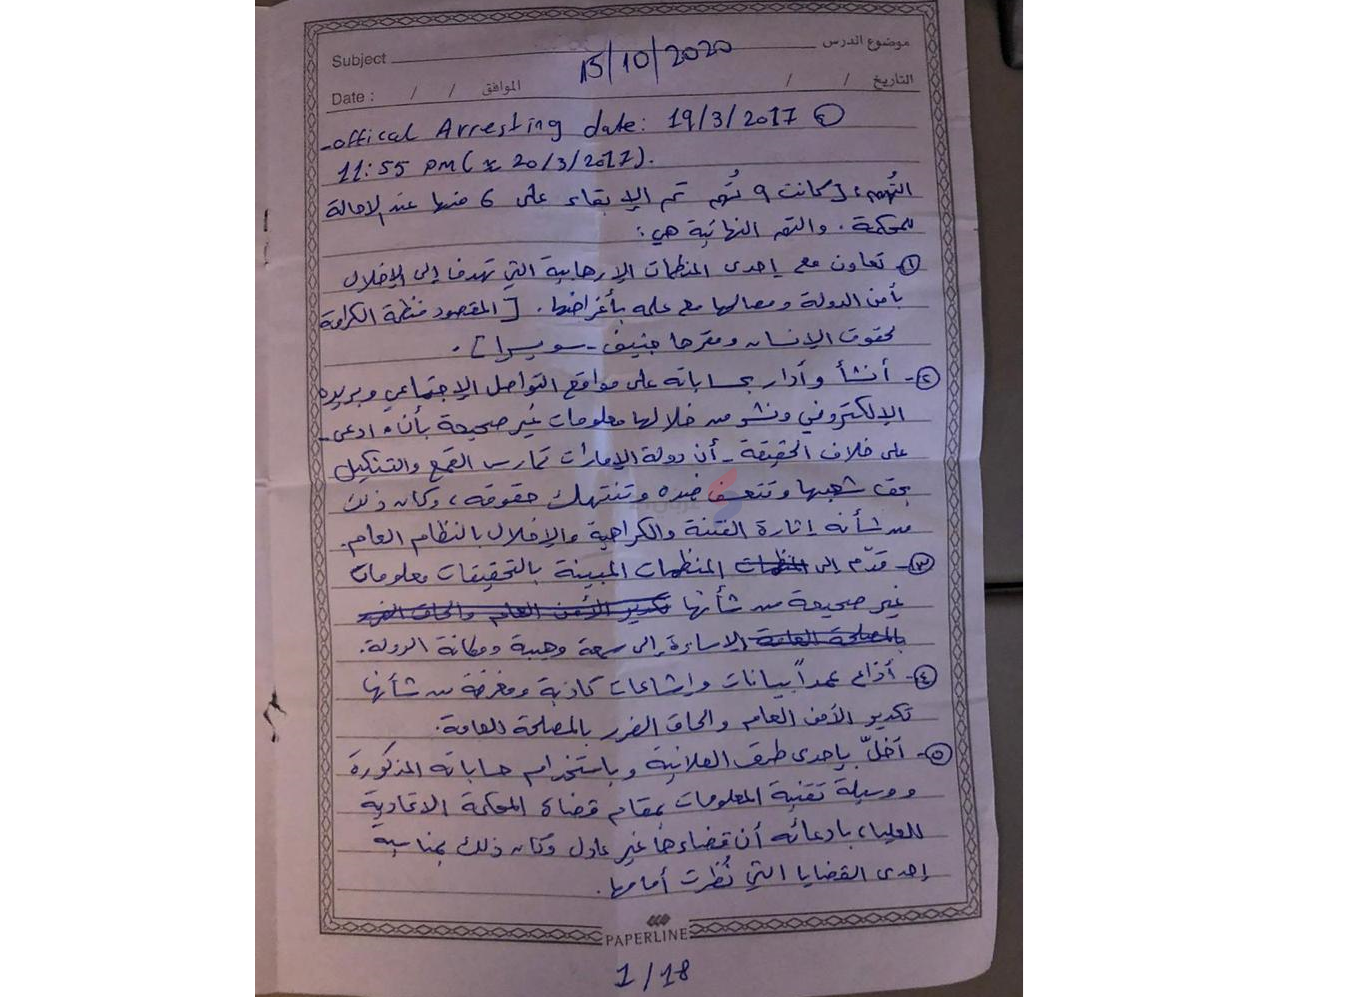 موضوع الدرس Subject
15/10/2020
التاريخ / / الموافق / / Date :
-offical Arresting date: 19/3/2017
11:55 pm ( 20/3/2017).
التُهم: [كانت 9 تُهم تم الإبقاء على 6 منها عند الإحالة
للمحكمة. والتهم النهائية هي:
١- تعاون مع إحدى المنظمات الإرهابية التي تهدف إلى الإخلال
بأمن الدولة ومصالحها مع علمه بأغراضها. [المقصود منظمة الكرامة
لحقوق الإنسان ومقرها جنيف - سويسرا].
٢- أنشأ وأدار حساباته على مواقع التواصل الإجتماعي وبريده
الإلكتروني ونشر من خلالها معلومات غير صحيحة بأن ادعى -
على خلاف الحقيقة - أن دولة الإمارات تمارس القمع والتنكيل
بحق شعبها وتتعسف ضده وتنتهك حقوقه، وكان ذلك
من شأنه إثارة الفتنة والكراهية والإخلال بالنظام العام.
٣- قدّم إلى المنظمات المنظمات المبينة بالتحقيقات معلومات
غير صحيحة من شأنها تكدير الأمن العام والحاق الضرر
بالمصلحة العامة الإساءة إلى سمعة وهيبة ومكانة الدولة.
٤- أذاع عمداً بيانات وإشاعات كاذبة ومغرضة من شأنها
تكدير الأمن العام والحاق الضرر بالمصلحة العامة.
٥- أخلّ بإحدى طرق العلانية وباستخدام حساباته المذكورة
ووسيلة تقنية المعلومات بمقام قضاة المحكمة الاتحادية
العليا، بادعائه أن قضاءها غير عادل وكان ذلك بمناسبة
إحدى القضايا التي نُظرت أمامها.
PAPERLINE
1/18